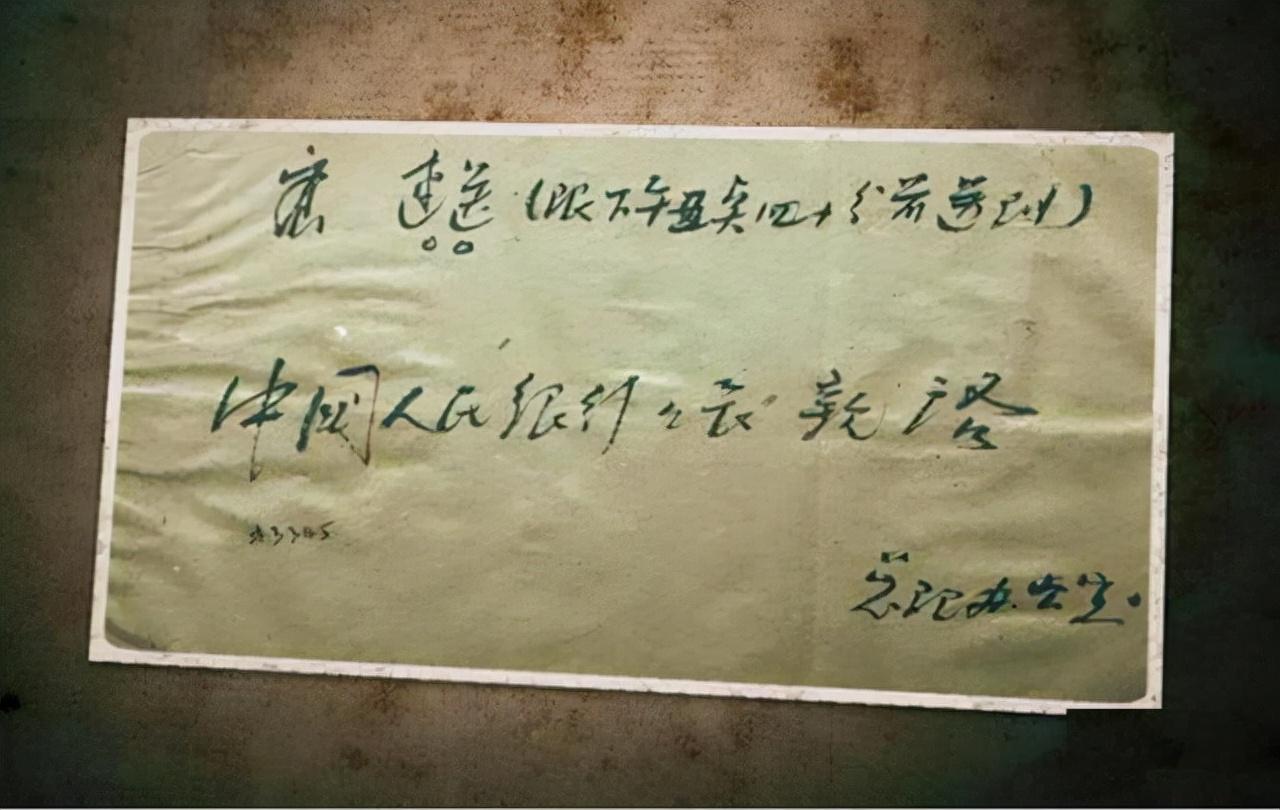 速送（限下午五点四十分前送到）
中国人民银行々长 親啟
总理办公室